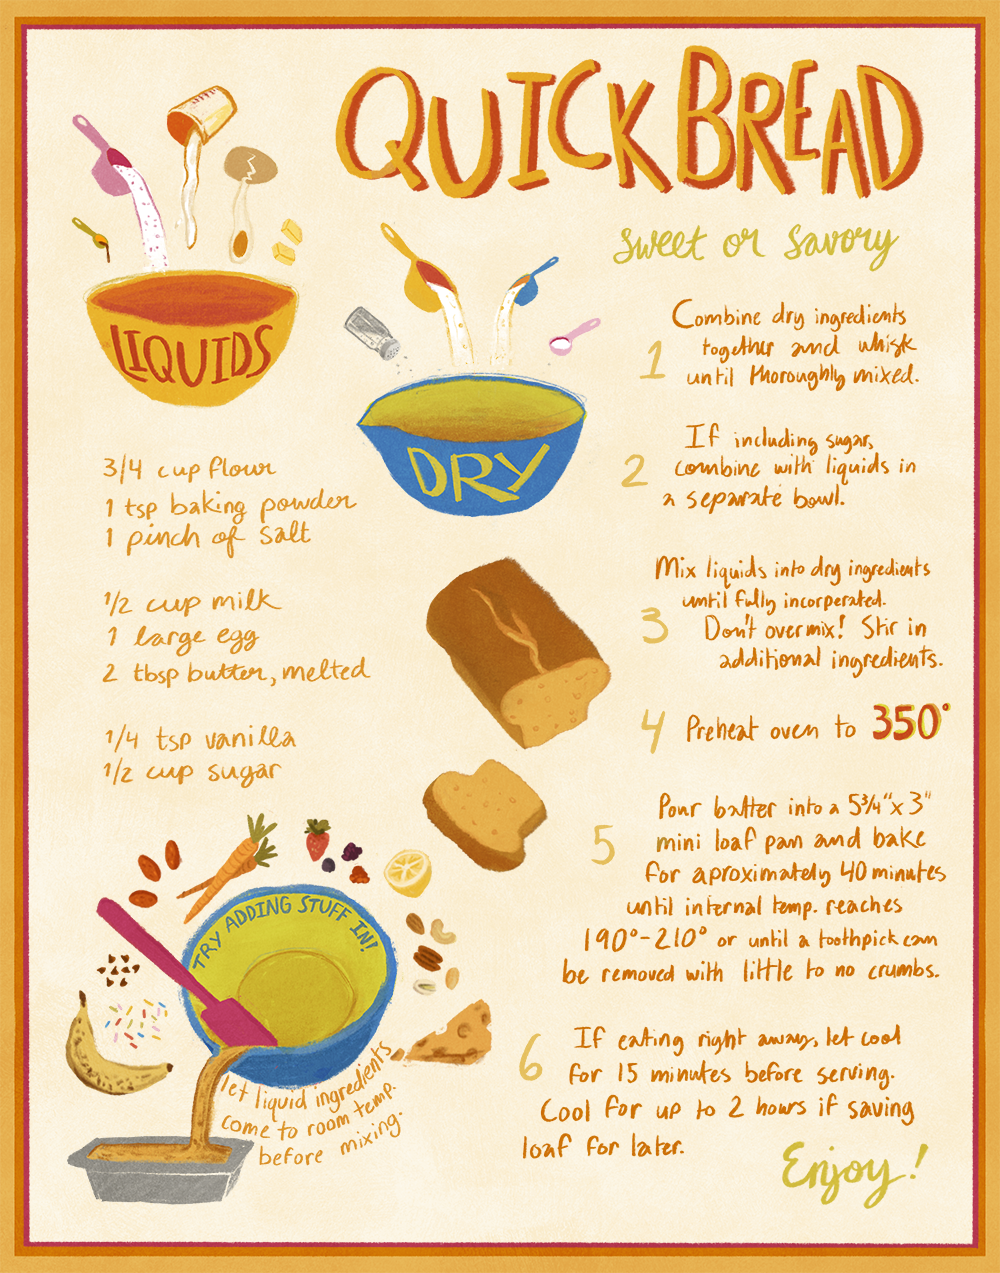 QUICK BREAD
sweet or savory
LIQUIDS
DRY
3/4 cup flour
1 tsp baking powder
1 pinch of salt
1/2 cup milk
1 large egg
2 tbsp butter, melted
1/4 tsp vanilla
1/2 cup sugar
TRY ADDING STUFF IN!
let liquid ingredients
come to room temp.
before mixing.
1
Combine dry ingredients
together and whisk
until thoroughly mixed.
2
If including sugar,
combine with liquids in
a separate bowl.
3
Mix liquids into dry ingredients
until fully incorperated.
Don't overmix! Stir in
additional ingredients.
4 Preheat oven to 350°
5
Pour batter into a 5¾"x 3"
mini loaf pan and bake
for aproximately 40 minutes
until internal temp. reaches
190°-210° or until a toothpick can
be removed with little to no crumbs.
6
If eating right away, let cool
for 15 minutes before serving.
Cool for up to 2 hours if saving
loaf for later.
Enjoy!